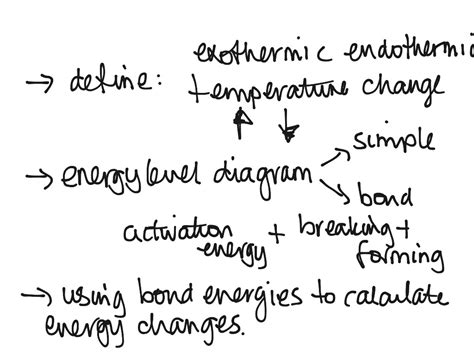 exothermic endothermic
→ define: temperature change
↑ ↓
→ energy level diagram → simple
→ bond
activation energy + breaking + forming
→ using bond energies to calculate
energy changes.